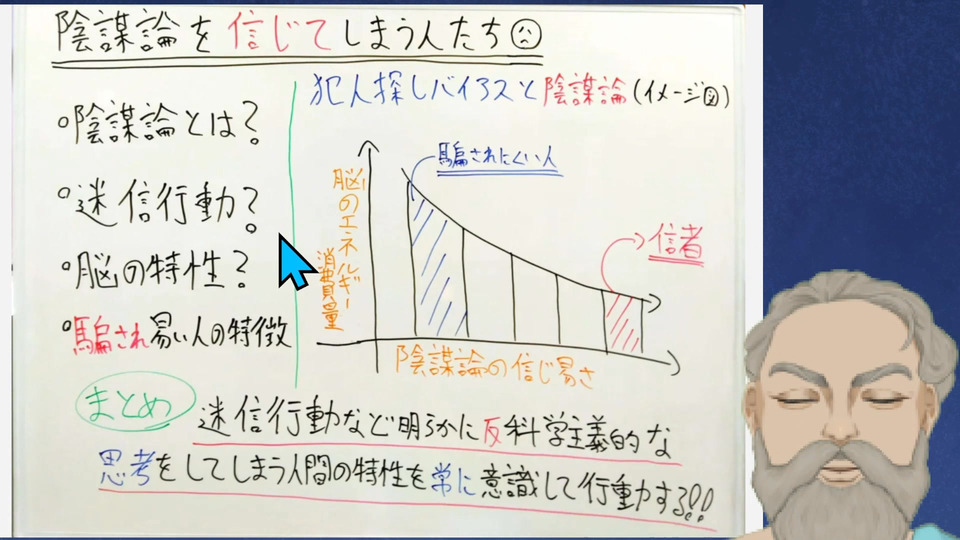 陰謀論を信じてしまう人たち
犯人探しバイアスと陰謀論(イメージ図)
陰謀論とは?
迷信行動?
脳の特性?
騙され易い人の特徴
騙されにくい人
信者
脳のエネルギー
消費量
陰謀論の信じ易さ
まとめ
迷信行動など明らかに反科学主義的な
思考をしてしまう人間の特性を常に意識して行動する!!